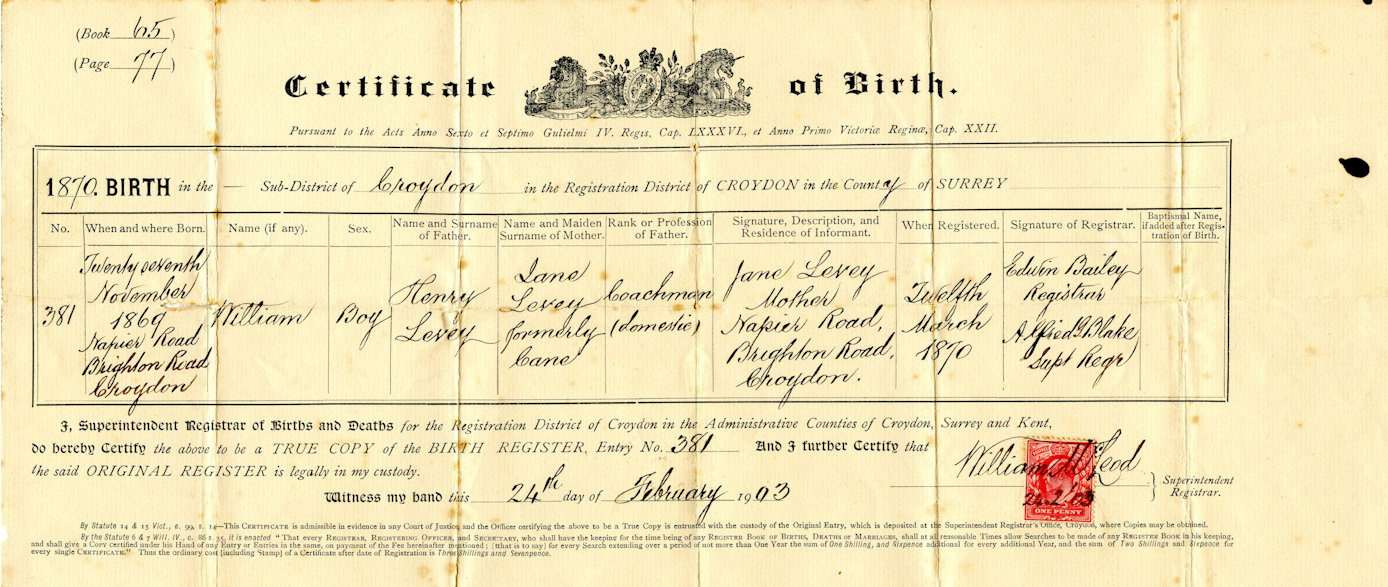 (Book 65)
(Page 77)
Certificate of Birth.
Pursuant to the Acts Anno Sexto et Septimo Gulielmi IV. Regis, Cap. LXXXVI., et Anno Primo Victoriæ Reginæ, Cap. XXII.
1870. BIRTH in the — Sub-District of Croydon in the Registration District of CROYDON in the County of SURREY
No.
When and where Born.
Name (if any).
Sex.
Name and Surname
of Father.
Name and Maiden
Surname of Mother.
Rank or Profession
of Father.
Signature, Description, and
Residence of Informant.
When Registered.
Signature of Registrar.
Baptismal Name,
if added after Regis-
tration of Birth.
381
Twenty seventh
November
1869
Napier Road
Brighton Road
Croydon
William
Boy
Henry
Levey
Jane
Levey
formerly
Cane
Coachman
(domestic)
Jane Levey
Mother
Napier Road,
Brighton Road,
Croydon.
Twelfth
March
1870
Edwin Bailey
Registrar
Alfred G. Blake
Supt Regr
I, Superintendent Registrar of Births and Deaths for the Registration District of Croydon in the Administrative Counties of Croydon, Surrey and Kent,
do hereby Certify the above to be a TRUE COPY of the BIRTH REGISTER, Entry No. 381 And I further Certify that
the said ORIGINAL REGISTER is legally in my custody.
William
Superintendent
Registrar.
Witness my hand this 24th day of February 1903
24.2.03
ONE PENNY
By Statute 14 & 15 Vict., c. 99, s. 14—This CERTIFICATE is admissible in evidence in any Court of Justice, and the Officer certifying the above to be a True Copy is entrusted with the custody of the Original Entry, which is deposited at the Superintendent Registrar's Office, Croydon, where Copies may be obtained.
By the Statute 6 & 7 Will. IV., c. 86 s. 35, it is enacted "That every REGISTRAR, REGISTERING OFFICER, and SECRETARY, who shall have the keeping for the time being of any REGISTER BOOK OF BIRTHS, DEATHS OR MARRIAGES, shall at all reasonable Times allow Searches to be made of any REGISTER BOOK in his keeping,
and shall give a Copy certified under his Hand of any Entry or Entries in the same, on payment of the Fee hereinafter mentioned; (that is to say) for every Search extending over a period of not more than One Year the sum of One Shilling, and Sixpence additional for every additional Year, and the sum of Two Shillings and Sixpence for
every single CERTIFICATE." Thus the ordinary cost (including Stamp) of a Certificate after date of Registration is Three Shillings and Sevenpence.